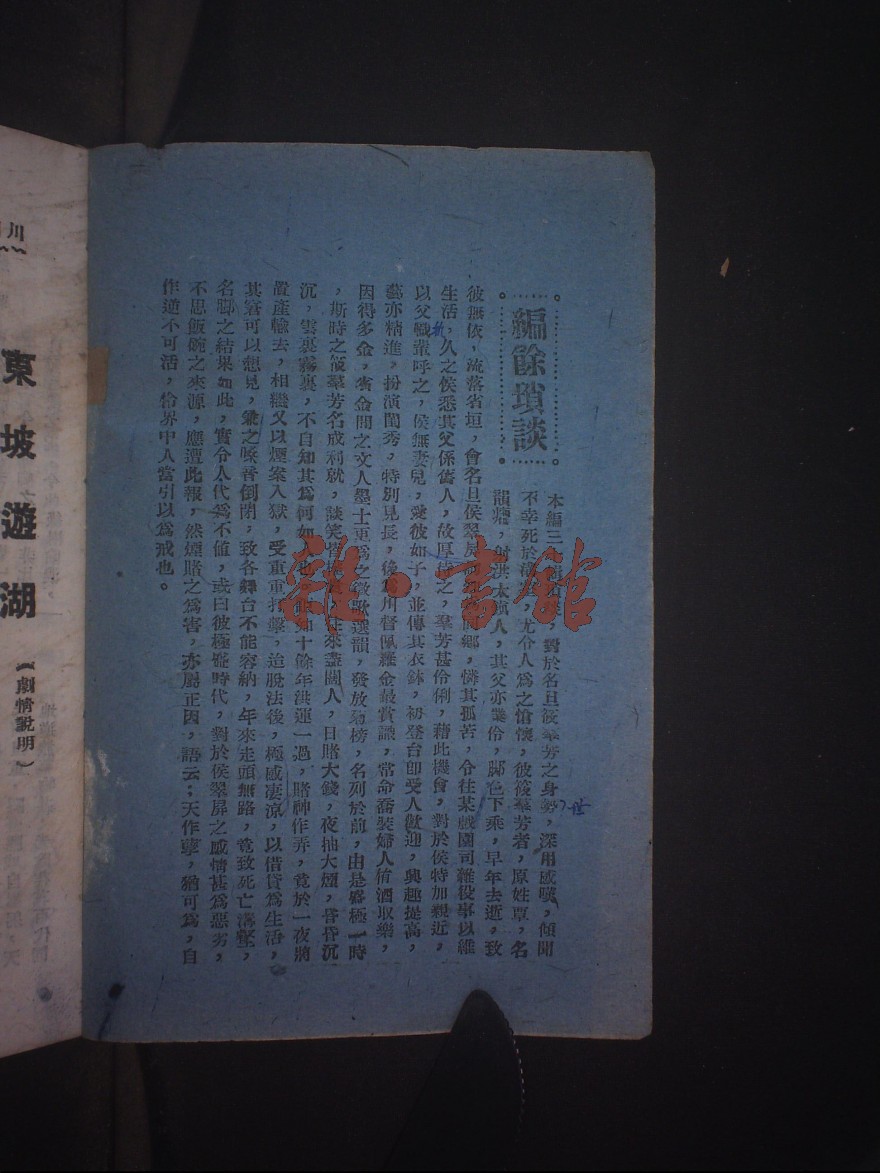 編餘瑣談
本編三
對於名旦筱羣芳之身勢，深用感嘆，傾聞
不幸死於
，尤令人為之愴懷，彼筱羣芳者，原姓覃，名
韻
，射洪太
人，其父亦業伶，脚色下乘，早年去逝，致
彼無依，流落省垣，會名旦侯翠屏
鄉，憐其孤苦，令往某戲園司雜役事以維
生活，久之侯悉其父係舊人，故厚待之，羣芳甚伶俐，藉此機會，對於侯特加親近，
以父職輩呼之，侯無妻兒，愛彼如子，並傳其衣鉢，初登台即受人歡迎，興趣提高，
藝亦精進，扮演閨秀，特別見長，後
川督佩羅金最賞識，常命喬裝婦人侑酒取樂，
因得多金，賓金間之文人墨士更為之徵歌選韻，發放菊榜，名列於前，由是盛極一時
，斯時之筱羣芳名成利就，談笑皆
往來盡闊人，日賭大錢，夜抽大煙，昏昏沉
沉，雲裏霧裏，不自知其為何如人也
十餘年洪運一過，賭神作弄，竟於一夜將
置產輸去，相繼又以煙案入獄，受重重打擊，迨脫法後，極感凄涼，以借貸為生活，
其窘可以想見，兼之嗓音倒閉，致各舞台不能容納，年來走頭無路，竟致死亡溝壑，
名脚之結果如此，實令人代為不值，或曰彼極盛時代，對於侯翠屏之感情甚為惡劣，
不思飯碗之來源，應遭此報，然煙賭之為害，亦屬正因，語云；天作孽，猶可為，自
作逆不可活，伶界中人當引以為戒也。
川
東坡遊湖
（劇情說明）
雜·書館